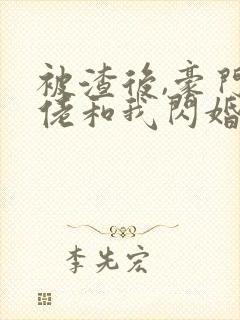 被渣後,豪門
佬和我閃婚
李先宏